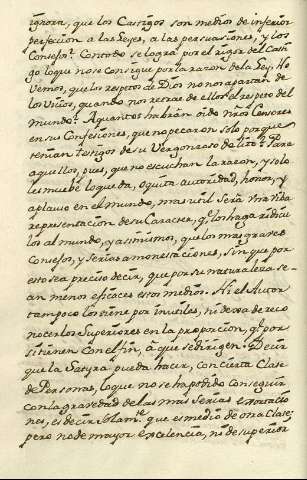 ignora, que los Castigos son medios de inferior
perfeccion a las Leyes, a las persuasiones, y los
Consejos. Con todo se logra por el rigor del Casti-
go lo que no se consigue por la razon de la Ley. No
vemos, que los respetos de Dios no nos aparten de
los Vicios, quando nos retrae de ellos el respeto del
mundo. A quantos habrán oido nros Censores
en sus Confesiones, que no pecaron solo porque
tenian testigos de su Vergonzoso delito. Para
aquellos, pues, que no escuchan la razon, y solo
les muebe lo que da, o quita autoridad, honor, y
aplauso en el mundo, mas util será una vida
representacion de su Caracter, q.e los haga ridicu-
los al mundo, y a si mismos, que los mas graves
Consejos, y serias amonestaciones, sin que por
esto sea preciso decir, que por su naturaleza se-
an menos eficaces estos medios. Ni el Autor
tampoco los tiene por inutiles, ni dexa de reco
nocerlos Superiores en la proporcion, q.e por
si tienen con el fin, à que se dirigen. Decir
que la Satyra pueda hacer, con cierta Clase
de Personas, lo que no se ha podido conseguir
con la gravedad de las mas serias exortacio
nes, es decir solam.te que es medio de otra Clase;
pero no de mayor excelencia, ni de superior